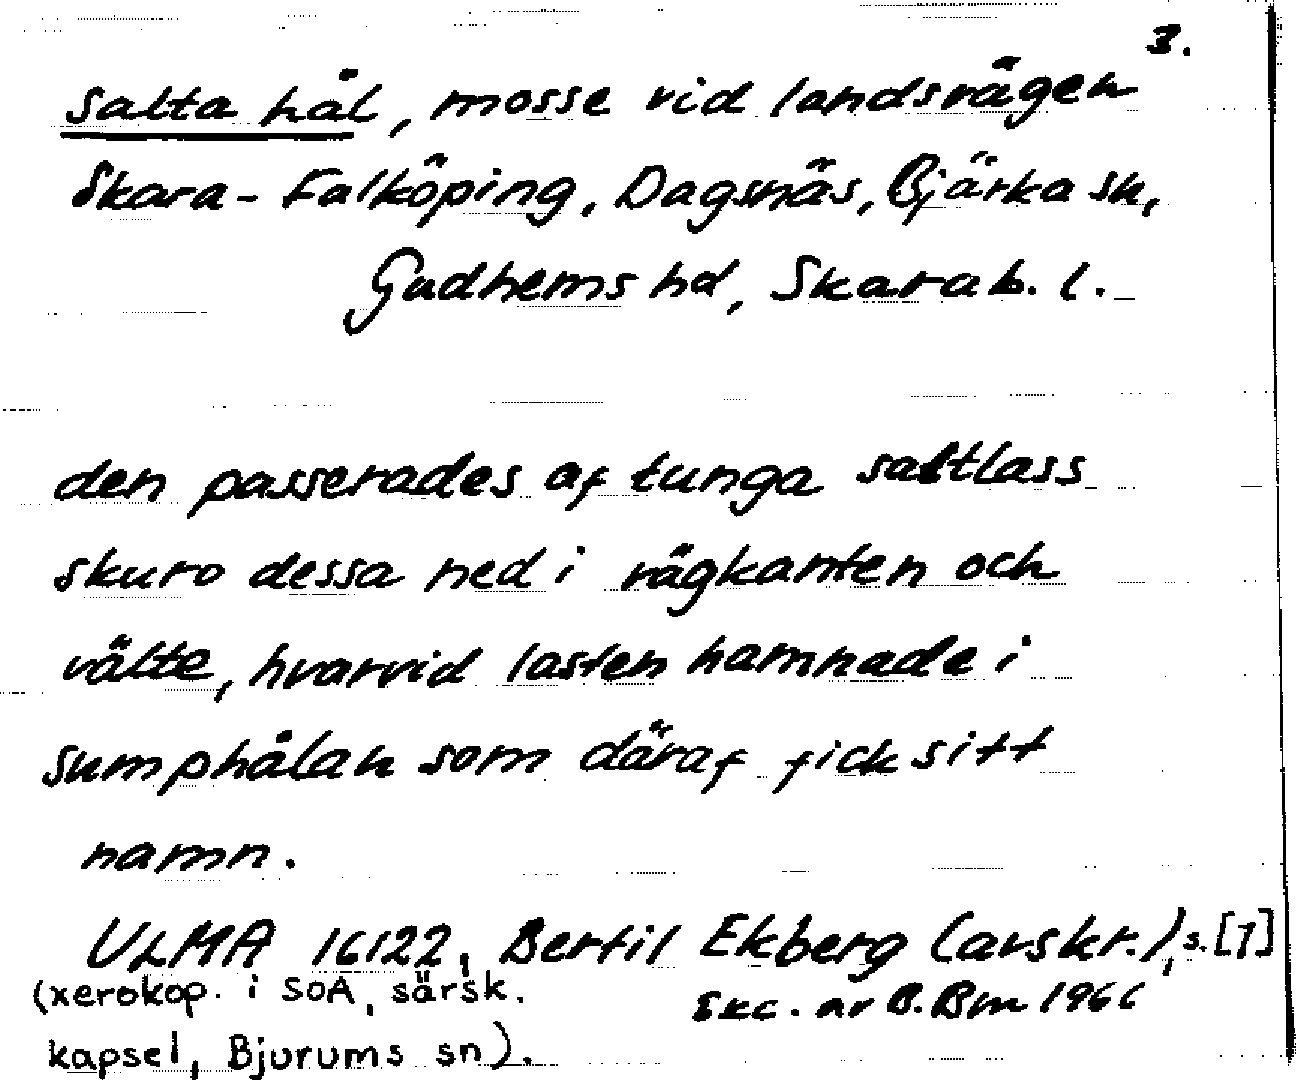 3.
Salta hål, mosse vid landsvägen
Skara - Falköping, Dagsnäs, Bjärka sn,
Gudhems hd, Skarab. l.
den passerades af tunga saltlass
skuro dessa ned i vägkanten och
välte, hvarvid lasten hamnade i
sumphålan som däraf fick sitt
namn.
ULMA 16122, Bertil Ekberg (avskr.), s. [7]
(xerokop. i SOA, särsk.
Exc. av B. Bm 1966
kapsel, Bjurums sn).